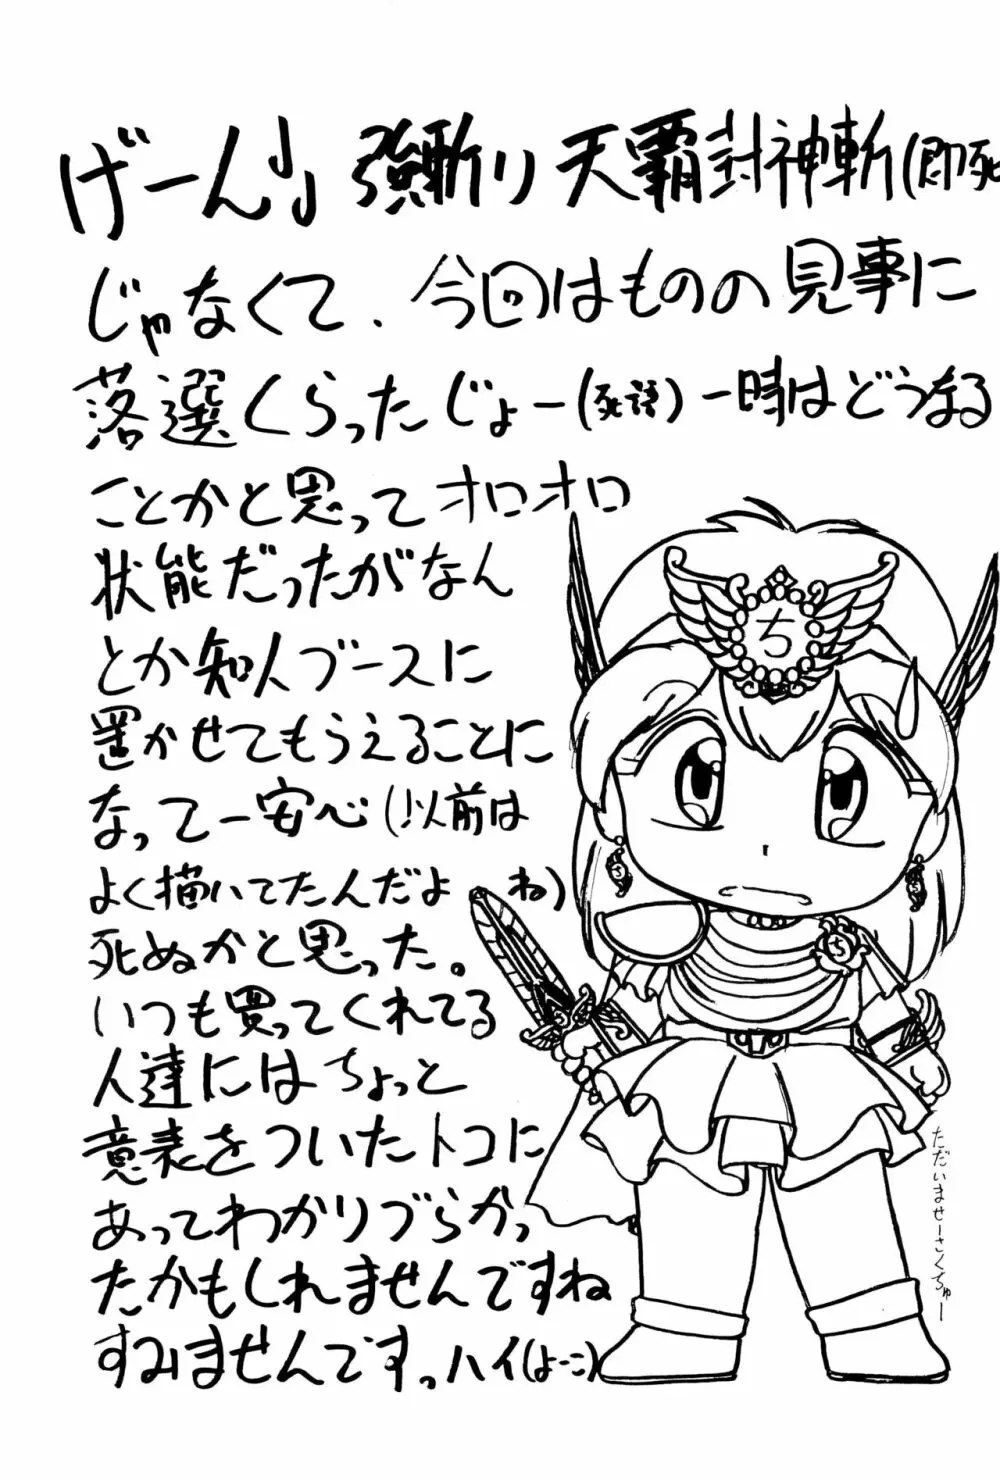 げーん♩♩ 強斬り 天覇封神斬(即死
じゃなくて、今回はものの見事に
落選くらったじょー(死語) 一時はどうなる
ことかと思ってオロオロ
状態だったがなん
とか知人ブースに
置かせてもらえることに
なって一安心(!以前は
よく描いてたんだよ ね)
死ぬかと思った。
いつも買ってくれてる
人達にはちょっと
意表をついたトコに
あってわかりづらかっ
たかもしれませんですね
すみませんです。ハイ(よーこ)
ち
ち
ただいませーさくちゅー